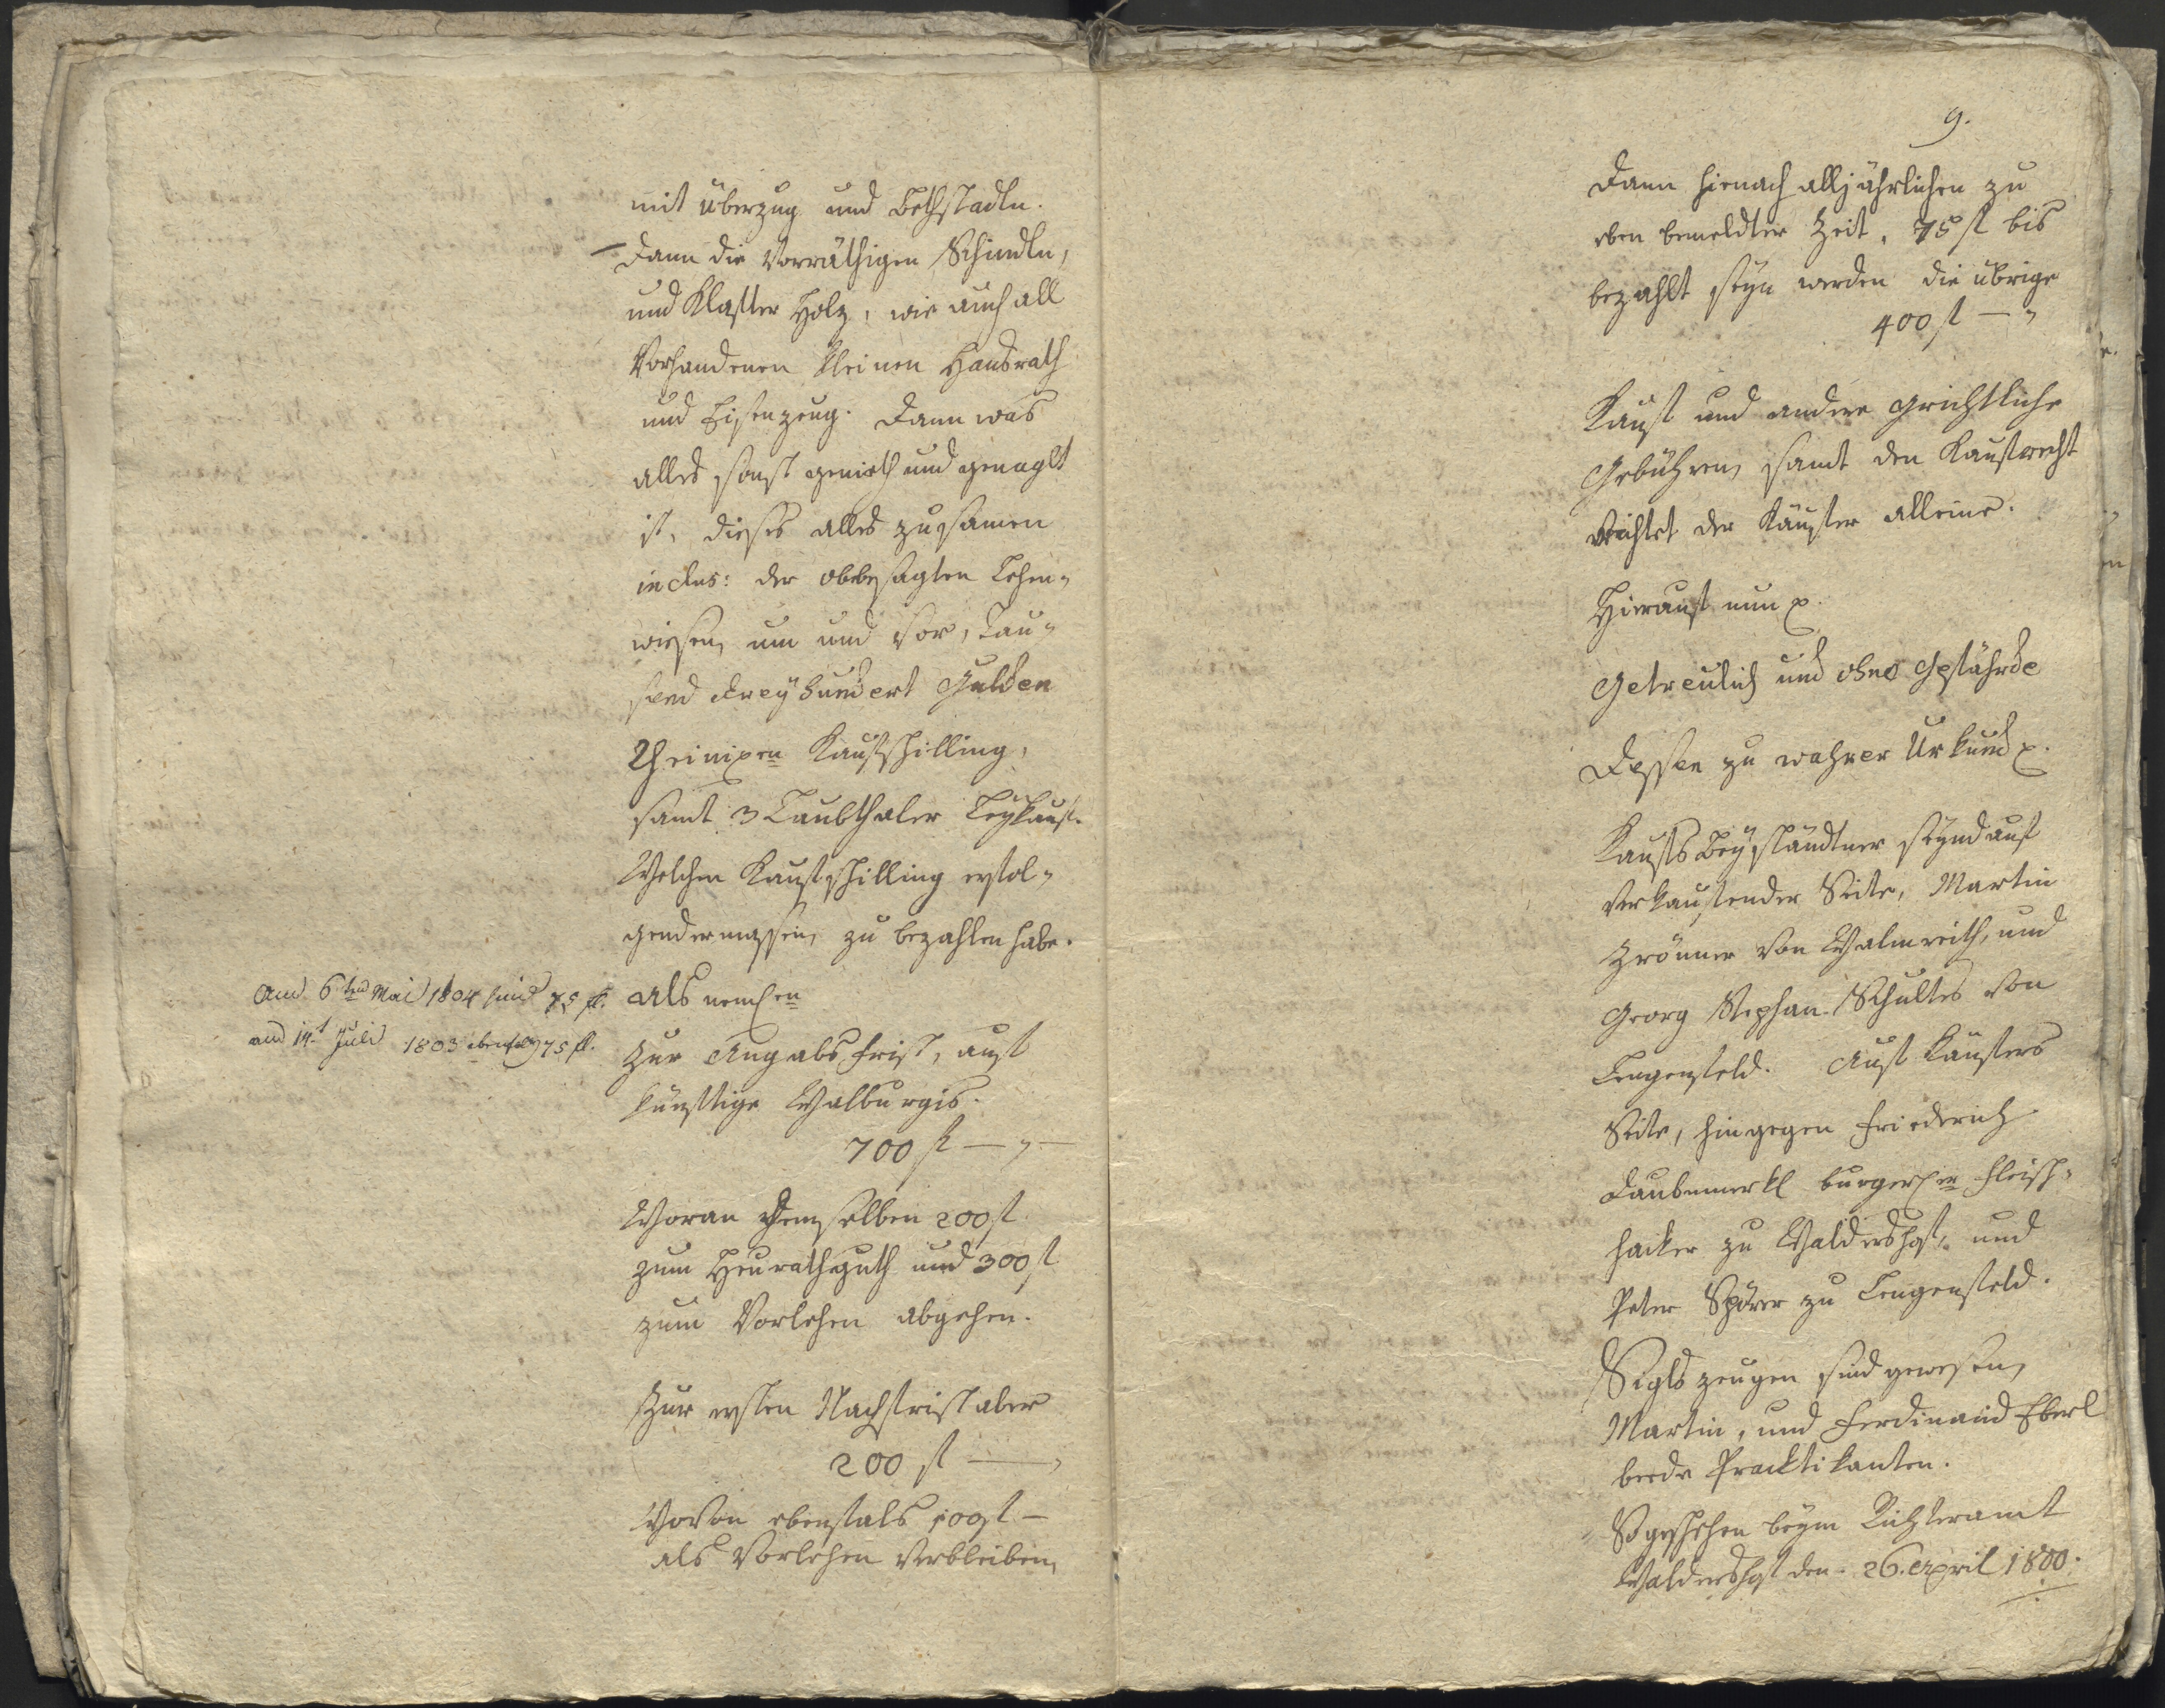 mit überzug und Bethstadln.
Dann die vorräthigen Schindln,
und Klafter Holz, wie auch all
Vorhandenen kleinen Hausrath
und Eisenzeug. Dann was
alles sonst genieth und genaglt
ist, dieses alles zusamen
inclus: der obbesagten Lehen-
wiesen, um und vor, Tau-
send dreyhundert Gulden
Rheinischen Kaufschilling,
samt 3 Laubthaler Leykauf.
Welchen Kaufschilling erfol-
gendermassen, zu bezahlen habe.
Als nemlichen
Am 6ten Mai 1804 sind 75 fl.
am 14t Juli 1803 ebenfalls 75 fl.
Zur Angabsfrist, auf
künftige Walburgis.
700 fl —
Woran demselben 200 fl
zum Heurathguth und 300 fl
zum Vorlehen abgehen.
Zur ersten Nachfrist aber
200 fl —
Wovon ebenfals 100 fl —
als Vorlehen verbleiben,
9.
Dann hienach alljährlichen zu
eben bemeldter Zeit, 75 fl bis
bezahlt seyn werden die übrige
400 fl —
Kauf und andere grichtliche
Gebühren, samt den Kaufrecht
richtet der Käufer alleine.
Hierauf nun p.
Getreulich und ohne Gefährde
Dessen zu wahrer Urkund p.
Kaufs Beyständtner seynd auf
verkaufender Seite, Martin
Zrönner von Walmreith, und
Georg Stephan Schultes von
Lengenfeld. Auf Käufers
Seite, hingegen Friederich
Daubenmerkl burgerlichen Fleisch-
hacker zu Waldershof, und
Peter Spörer zu Lengenfeld.
Siglszeugen sind gewesen,
Martin, und Ferdinand Eberl
beede Practikanten.
So geschehen beym Richteramt
Waldershof den 26. April 1800.